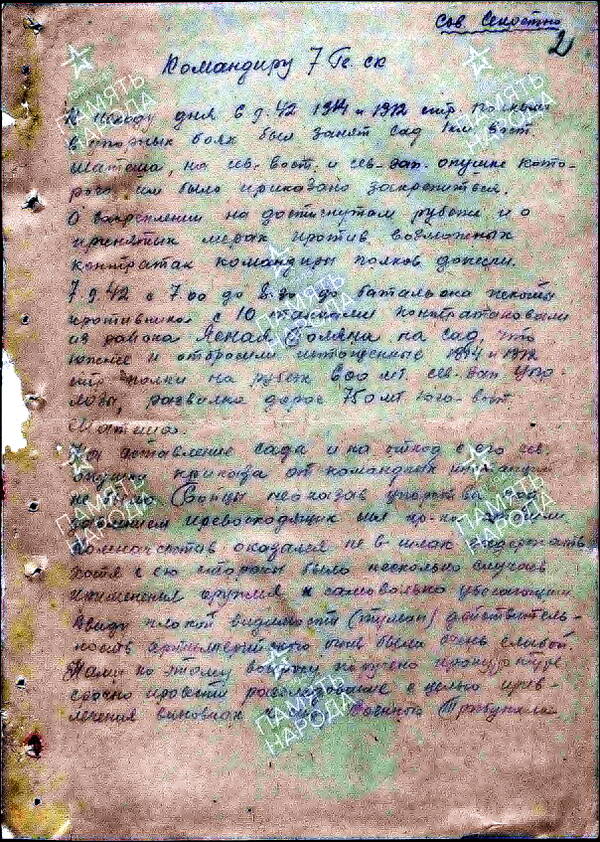 Сов Секретно
2
Командиру 7 Гв. ск
К исходу дня 6.9.42 1314 и 1312 стр. полками
в упорных боях был занят сад 1 км. вост.
на сев. вост. и сев-зап. опушке кото-
рого им было приказано закрепиться.
О закреплении на достигнутом рубеже и о
принятых мерах против возможных
контратак командиры полков донесли.
7.9.42 с 7.00 до 8.30 до батальона пехоты
противника с 10 танками контратаковали
из района Ясная Поляна на сад, что
южнее и отбросили истощенные 1314 и 1312
стр. полки на рубеж 600 мт. сев-зап.
развилка дорог 750 мт. юго-вост.
На оставление сада и на отход с его сев.
опушки приказа от командных инстанций
не было. Бойцы не оказав упорства под
давлением превосходящих сил пр-ка
Комначсостав оказался не в силах удержать
хотя с его стороны было несколько случаев
применения оружия к самовольно убегающим
Ввиду плохой видимости (туман) действитель-
ность артиллерийского огня была очень слабой.
Нами по этому вопросу поручено прокурору
срочно провести расследование с целью прив-
лечения виновных Военного Трибунала
ПАМЯТЬ
НАРОДА
ПАМЯТЬ
НАРОДА
ПАМЯТЬ
НАРОДА
ПАМЯТЬ
НАРОДА
ПАМЯТЬ
НАРОДА
ПАМЯТЬ
НАРОДА